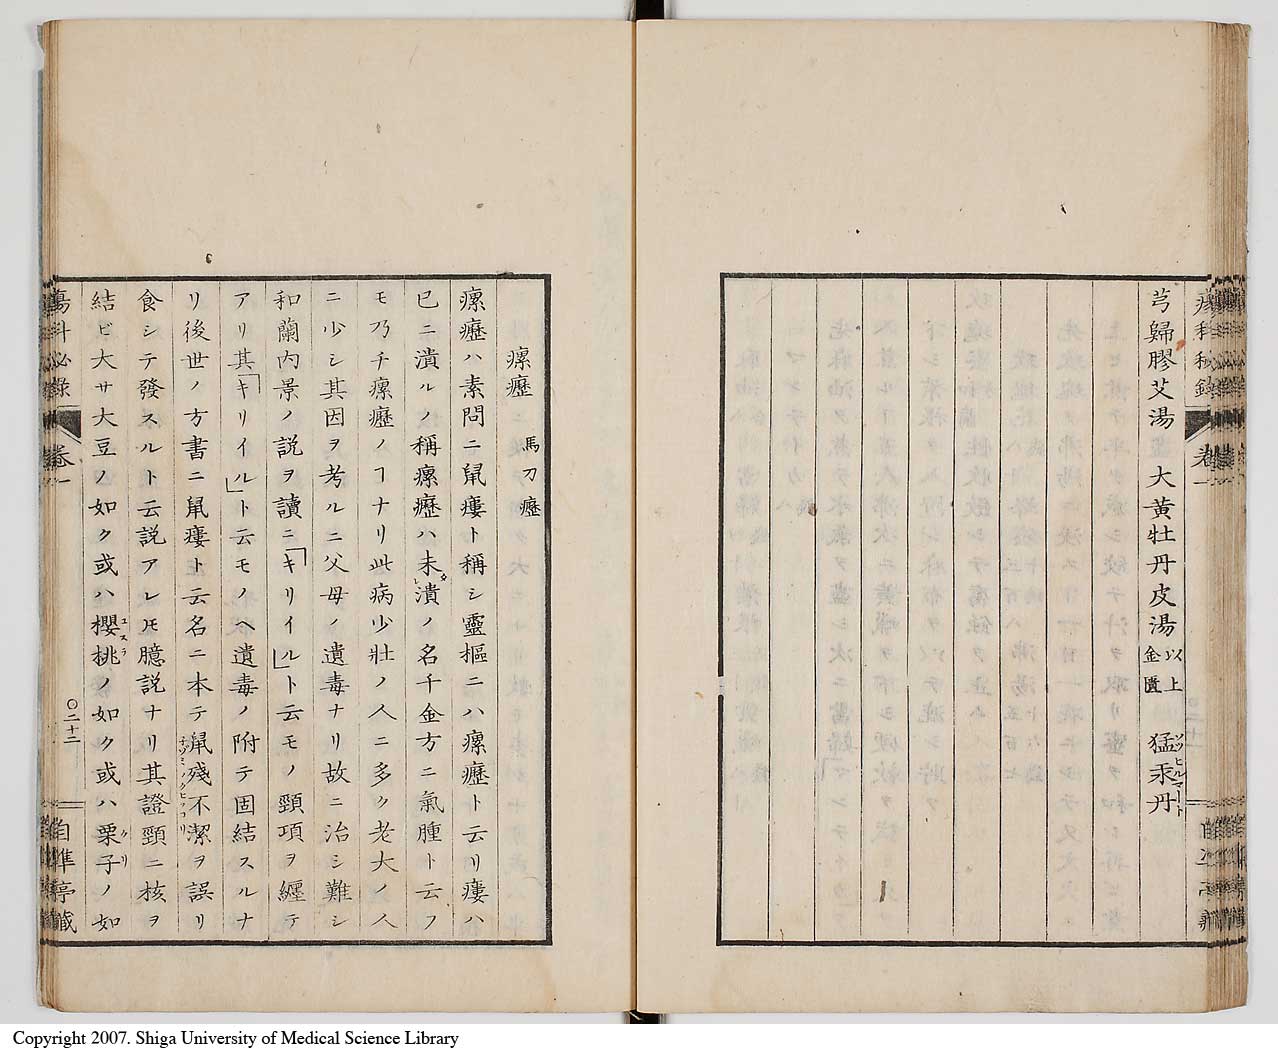 瘍科秘録 卷一
芎歸膠艾湯 大黃牡丹皮湯 以上金匱 猛汞丹 ソツヒルマート
瘰癧 馬刀癧
瘰癧ハ素問ニ鼠瘻ト稱シ靈樞ニハ瘰癧ト云リ瘻ハ
已ニ潰ルノ稱瘰癧ハ未潰ノ名千金方ニ氣腫ト云フ
モ乃チ瘰癧ノヿナリ此病少壯ノ人ニ多ク老大ノ人
ニ少シ其因ヲ考ルニ父母ノ遺毒ナリ故ニ治シ難シ
和蘭內景ノ說ヲ讀ニ「キリイル」ト云モノ頸項ヲ纒テ
アリ其「キリイル」ト云モノヘ遺毒ノ附テ固結スルナ
リ後世ノ方書ニ鼠瘻ト云名ニ本テ鼠殘不潔ヲ誤リ
食シテ發スルト云説アレ𪜈臆説ナリ其證頸ニ核ヲ
結ビ大サ大豆ノ如ク或ハ櫻桃ノ如ク或ハ栗子ノ如
瘍科祕錄 卷一 〇二十二 自準亭藏
Copyright 2007. Shiga University of Medical Science Library